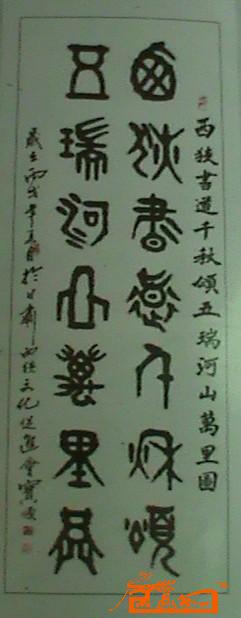 西狹書道千秋頌五瑞河山萬里圖
西狹書道千秋頌
五瑞河山萬里圖
歲在丙戌年夏日於甘肅西狹文化促進會寶